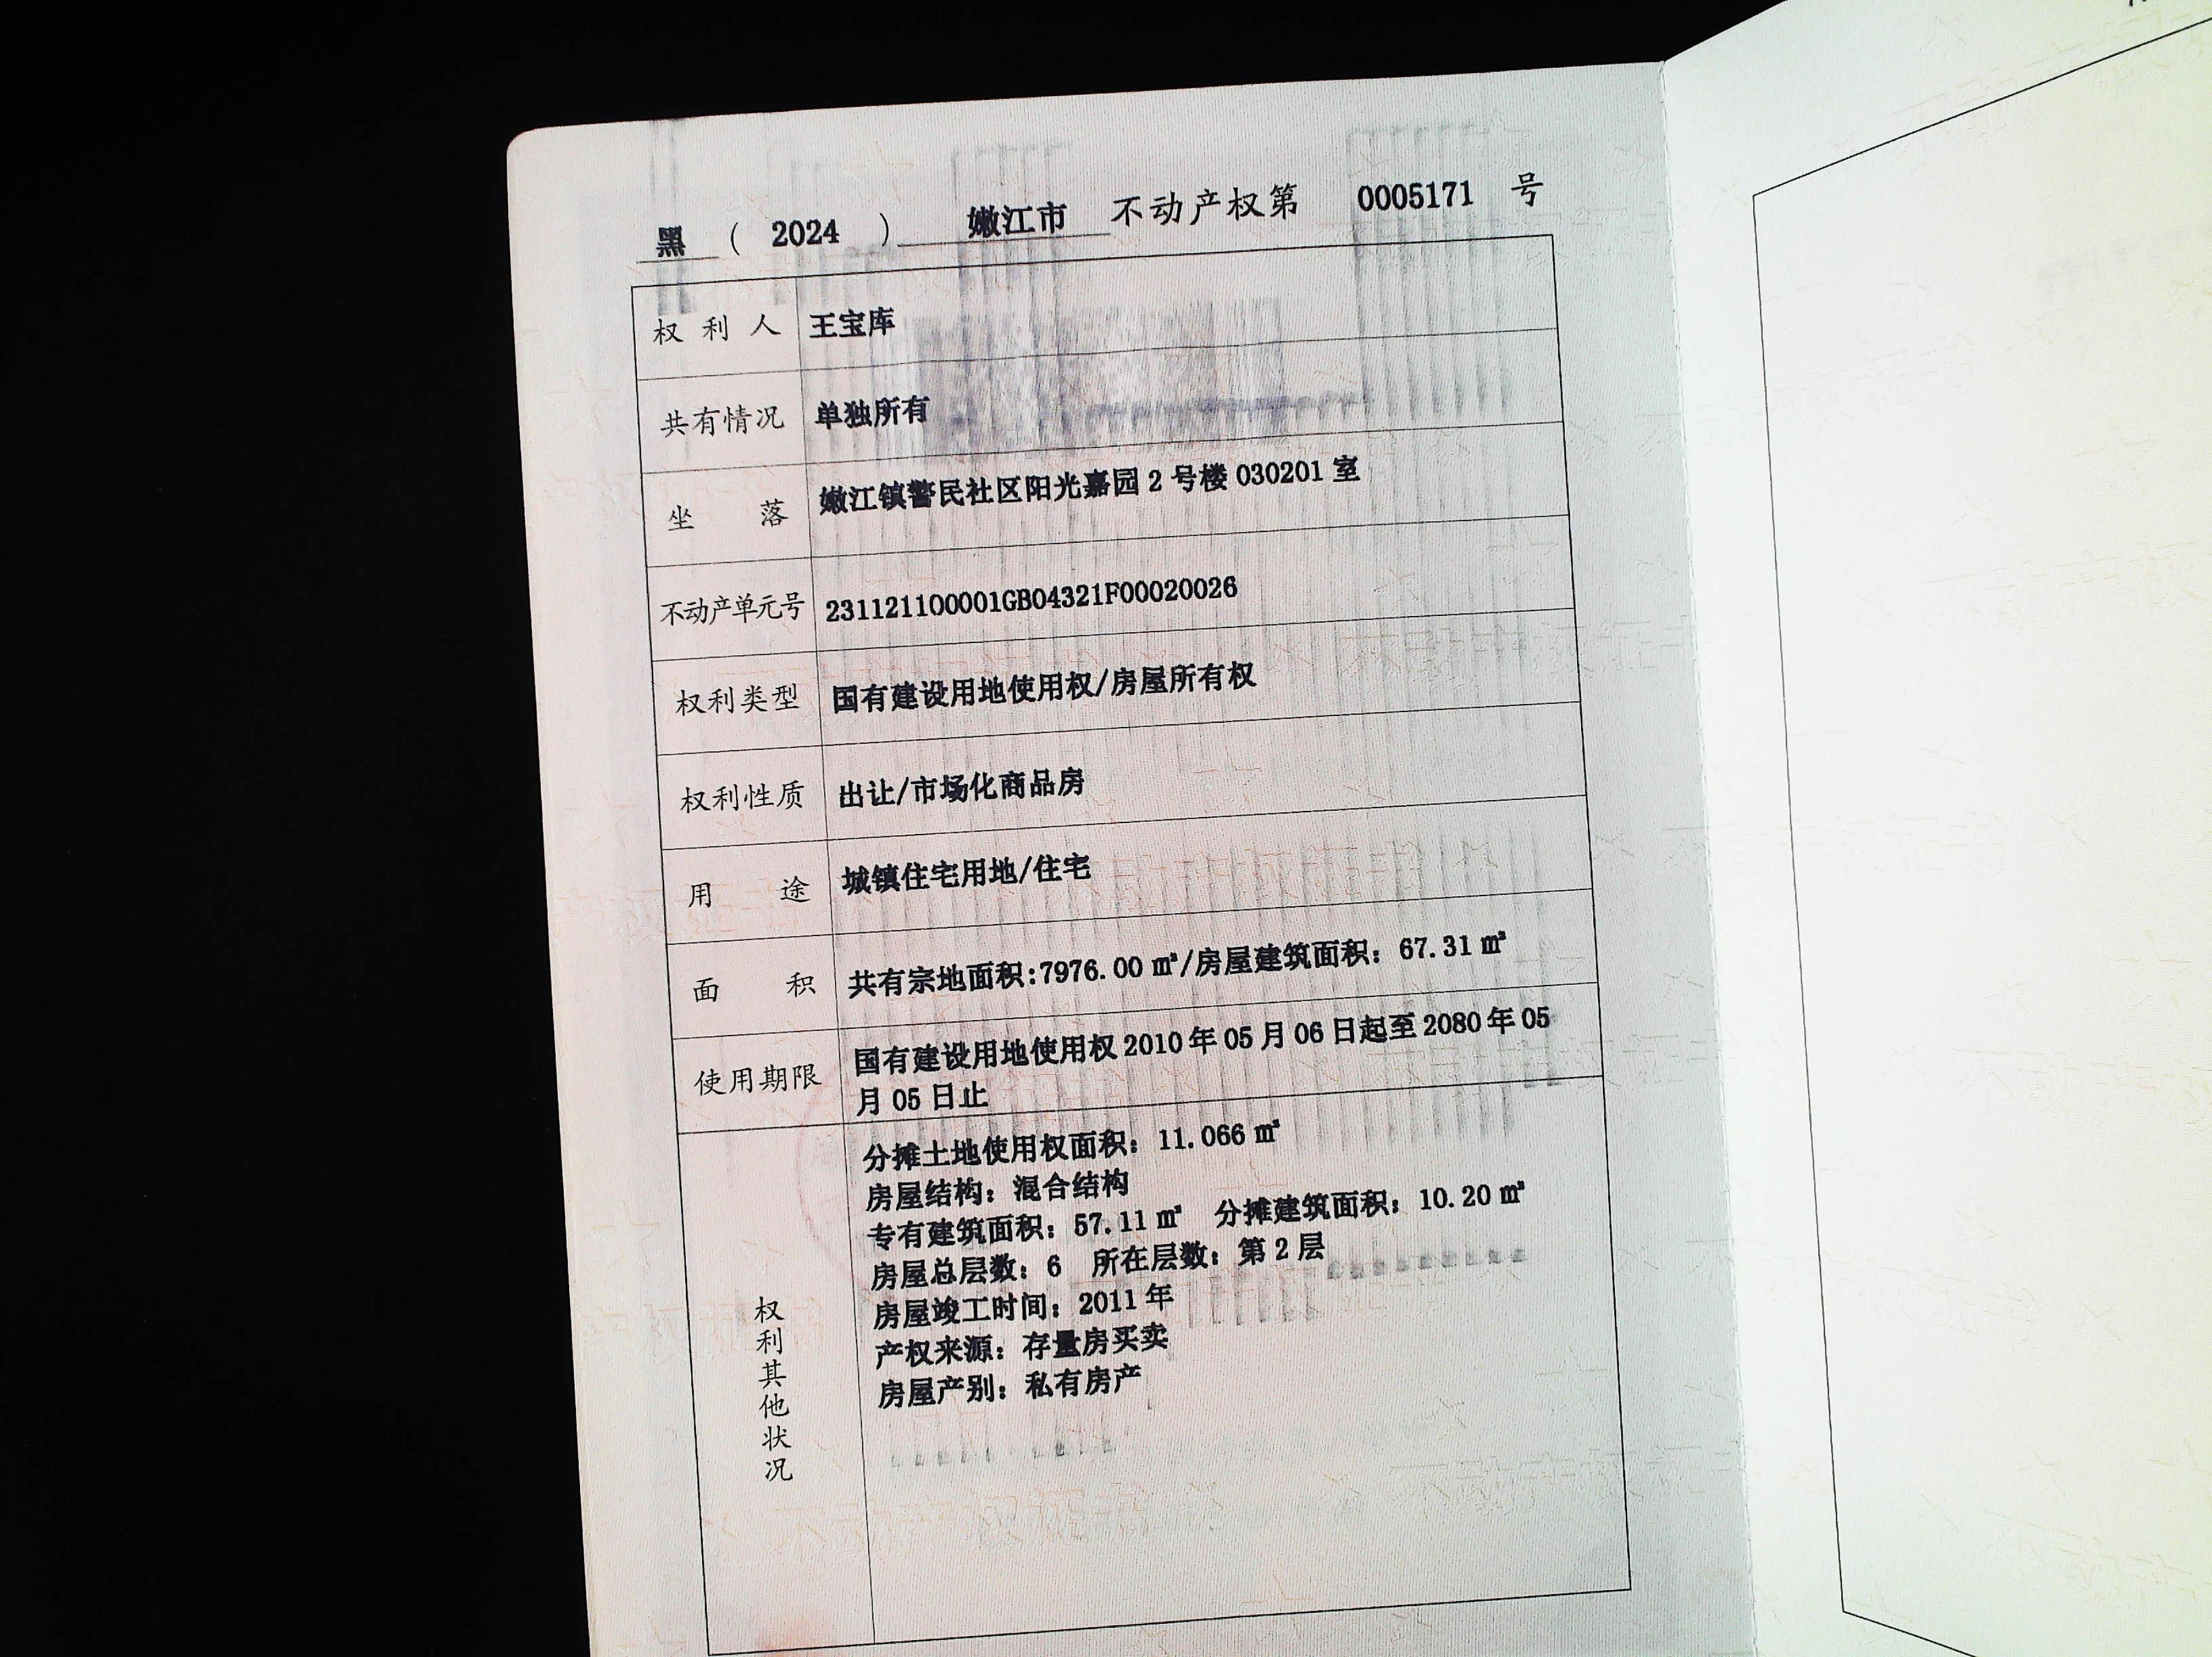 黑 ( 2024 ) 嫩江市 不动产权第 0005171 号
权利人 王宝库
共有情况 单独所有
坐落 嫩江镇警民社区阳光嘉园 2 号楼 030201 室
不动产单元号 231121100001GB04321F00020026
权利类型 国有建设用地使用权/房屋所有权
权利性质 出让/市场化商品房
用途 城镇住宅用地/住宅
面积 共有宗地面积:7976.00 ㎡/房屋建筑面积：67.31 ㎡
使用期限 国有建设用地使用权 2010 年 05 月 06 日起至 2080 年 05
月 05 日止
权利其他状况
分摊土地使用权面积：11.066 ㎡
房屋结构：混合结构
专有建筑面积：57.11 ㎡ 分摊建筑面积：10.20 ㎡
房屋总层数：6 所在层数：第 2 层
房屋竣工时间：2011 年
产权来源：存量房买卖
房屋产别：私有房产